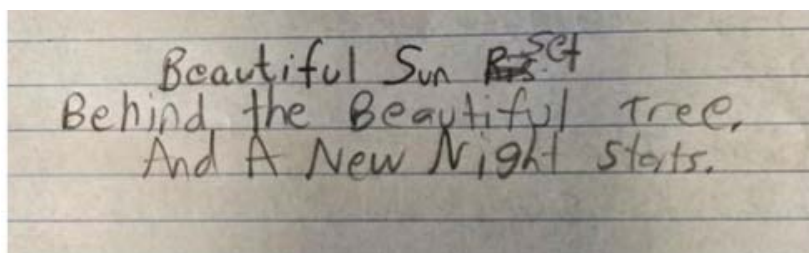 Beautiful Sun Set
Behind the Beautiful Tree,
And A New Night Starts.